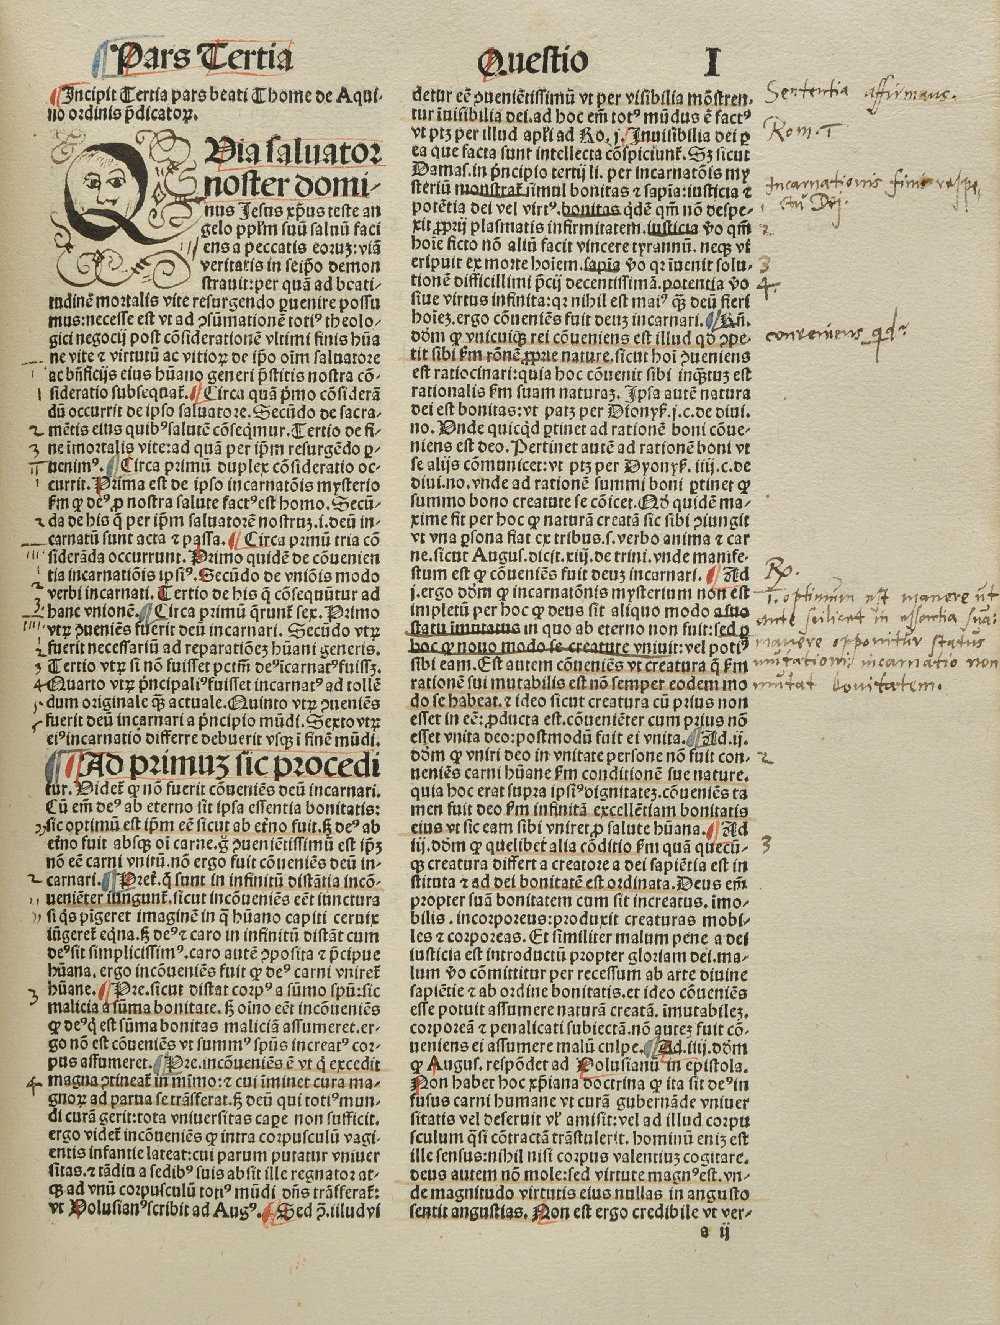 Pars Tertia
Questio
I
Incipit Tertia pars beati Thome de Aqui-
no ordinis p̄dicatoꝝ.
QVia saluator
noster domi-
nus Jesus xp̄us teste an
gelo ppl̄m suū saluū faci
ens a peccatis eoruꝫ: viā
veritatis in seip̄o demon
strauit: per quā ad beati-
tudinē mortalis vite resurgendo ꝑuenire possu
mus: necesse est vt ad ꝯsūmationē totiꝰ theolo-
gici negocij post cōsiderationē vltimi finis hūa
ne vite ⁊ virtutū ac vitioꝝ de ip̄o oīm saluatore
ac bn̄ficijs eius hūano generi p̄stitis nostra cō-
sideratio subsequat᷑. Circa quā p̄mo cōsiderā
dū occurrit de ipso saluatore. Secūdo de sacra-
mētis eius quibꝰ salutē cōseq̄mur. Tertio de fi-
ne īmortalis vite: ad quā per ip̄m resurgēdo ꝑ-
uenimꝰ. Circa primū duplex cōsideratio oc-
currit. Prima est de ipso incarnatōis mysterio
ẜm ꝙ deꝰ ꝓ nostra salute factꝰ est homo. Secū-
da de his q̄ per ip̄m saluatorē nostruꝫ .i. deū in-
carnatū sunt acta ⁊ passa. Circa prmū tria cō
siderāda occurrunt. Primo quidē de cōuenien
tia incarnatiōis ipsiꝰ. Secūdo de vniōis modo
verbi incarnati. Tertio de his q̄ cōsequūtur ad
hanc vnionē. Circa primū q̄runt᷑ sex. Primo
vtꝝ ꝯueniēs fuerit deū incarnari. Secūdo vtꝝ
fuerit necessariū ad reparatiōeꝫ hūani generis.
Tertio vtꝝ si nō fuisset pctm̄ deꝰ īcarnatꝰ fuiss;.
Quarto vtꝝ p̄ncipaliꝰ fuisset incarnatꝰ ad tollē
dum originale qꝫ̄ actuale. Quinto vtꝝ ꝯueniēs
fuerit deū incarnari a p̄ncipio mūdi. Sexto vtꝝ
eiꝰ incarnatio differre debuerit vsqꝫ ī finē mūdi.
Ad primuꝫ sic procedi
tur. Videt᷑ ꝙ nō fuerit cōueniēs deū incarnari.
Cū em̄ deꝰ ab eterno sit ipsa essentia bonitatis:
sic optimū est ip̄m eē sicut ab et̄no fuit. ꜱꝫ deꝰ ab
et̄no fuit absqꝫ oī carne. g̊ ꝯuenientissimū est ip̄ꝫ
nō eē carni vnitū. nō ergo fuit cōueniēs deū in-
carnari. Pret᷑. q̄ sunt in infinitū distātia incō-
ueniēter iungunt᷑. sicut incōueniēs eēt iunctura
si q̄s pīgeret imaginē in q̄ hūano capiti ceruix
iūgeret᷑ eq̄na. ꜱꝫ deꝰ ⁊ caro in infinitū distāt cum
deꝰ sit simplicissimꝰ. caro autē ꝯposita ⁊ p̄cipue
hūana. ergo incōueniēs fuit ꝙ deꝰ carni vniret᷑
hūane. Pre. sicut distat corpꝰ a sūmo spū: sic
malicia a sūma bonitate. ꜱꝫ oīno eēt incōueniēs
ꝙ deꝰ q̄ est sūma bonitas maliciā assumeret. er-
go nō est cōueniēs vt summꝰ spūs increatꝰ cor-
pus assumeret. Pre. incōueniēs ē vt q̄ excedit
magna ꝯtineat᷑ in mīmo: ⁊ cui īminet cura ma-
gnoꝝ ad parua se trāsferat. ꜱꝫ deū qui totiꝰ mun-
di curā gerit: tota vniuersitas cape non sufficit.
ergo videt᷑ incōueniēs ꝙ intra corpusculū vagi-
entis infantie lateat: cui parum putatur vniuer
sitas. ⁊ tādiu a sedibꝰ suis absit ille regnator at-
qꝫ ad vnū corpusculū totiꝰ mūdi dn̄s trāsferat᷑:
vt Volusianꝰ scribit ad Augꝰ. Sed ꝯ̄. illud vi
detur eē ꝯueniētissimū vt per visibilia mōstren-
tur īuisibilia dei. ad hoc em̄ totꝰ mūdus ē factꝰ
vt ptꝫ per illud apl̄i ad Ro. j. Inuisibilia dei ꝑ
ea que facta sunt intellecta cōspiciunt᷑. Sꝫ sicut
Damas. in p̄ncipio tertij li. per incarnatōis my
steriū monstrat᷑ simul bonitas ⁊ sapīa: iusticia ⁊
potētia dei vel virtꝰ. bonitas q̄dē qm̄ nō despe-
xit ꝓprij plasmatis infirmitatem. iusticia v̊o qm̄
hoīe ficto nō aliū facit vincere tyrannū. necꝫ vi
eripuit ex morte hoīem. sapīa v̊o qꝛ īuenit solu-
tionē difficillimi p̄cij decentissimā. potentia v̊o
siue virtus infinita: qꝛ nihil est maiꝰ qꝫ̄ deū fieri
hoīeꝫ. ergo cōueniēs fuit deuꝫ incarnari. Rn̄.
dōm ꝙ vnicuiqꝫ rei cōueniens est illud qd̄ ꝯpe-
tit sibi ẜm rōnē ꝓprie nature. sicut hoī ꝯueniens
est ratiocinari: quia hoc cōuenit sibi inq̄ꝫtuꝫ est
rationalis ẜm suam naturaꝫ. Ipsa autē natura
dei est bonitas: vt patꝫ per Dionyẜ. j. c. de diui.
no. Vnde quicq̄d ꝑtinet ad rationē boni cōue-
niens est deo. Pertinet autē ad rationē boni vt
se alijs cōmunicet: vt ptꝫ per Dyonyẜ. iiij. c. de
diui. no. vnde ad rationē summi boni ꝑtinet ꝙ
summo bono creature se cōicet. Qd̄ quidē ma-
xime fit per hoc ꝙ naturā creatā sic sibi ꝯiungit
vt vna ꝑsona fiat ex tribus .s. verbo anima ⁊ car
ne. sicut Augus. dicit. xiij. de trini. vnde manife-
stum est ꝙ cōueniēs fuit deuꝫ incarnari. Ad
j. ergo dōm ꝙ incarnatōnis mysterium non est
impletū per hoc ꝙ deus sit aliquo modo a suo
statu imutatus in quo ab eterno non fuit: sed ꝑ
hoc ꝙ nouo modo se creature vniuit: vel potiꝰ
sibi eam. Est autem cōueniēs vt creatura q̄ ẜm
rationē sui mutabilis est nō semper eodem mo
do se habeat. ⁊ ideo sicut creatura cū prius non
esset in eē: ꝓducta est. cōueniēter cum prius nō
esset vnita deo: postmodū fuit ei vnita. Ad .ij.
dōm ꝙ vniri deo in vnitate persone nō fuit con-
ueniēs carni hūane ẜm conditionē sue nature.
quia hoc erat supra ipsiꝰ dignitateꝫ. cōueniēs ta
men fuit deo ẜm infinitā excellētiam bonitatis
eius vt sic eam sibi vniret ꝓ salute hūana. Ad
iij. dōm ꝙ quelibet alia cōditio ẜm quā quecū-
qꝫ creatura differt a creatore a dei sapiētia est in
stituta ⁊ ad dei bonitatē est ordinata. Deus em̄
propter suā bonitatem cum sit increatus. īmo-
bilis. incorporeus: produxit creaturas mobi-
les ⁊ corporeas. Et similiter malum pene a dei
iusticia est introductū propter gloriam dei. ma-
lum v̊o cōmittitur per recessum ab arte diuine
sapiētie ⁊ ab ordine bonitatis. et ideo cōueniēs
esse potuit assumere naturā creatā. īmutabileꝫ.
corporeā ⁊ penalitati subiectā. nō auteꝫ fuit cō-
ueniens ei assumere malū culpe. Ad .iiij. dōm
ꝙ Augus. respōdet ad Volusianū in epistola.
Non habet hoc xp̄iana doctrina ꝙ ita sit deꝰ in
fusus carni humane vt curā gubernāde vniuer
sitatis vel deseruit vl̓ amisit: vel ad illud corpu
sculum q̄si cōtractā trāstulerit. hominū eniꝫ est
ille sensus: nihil nisi corpus valentiuꝫ cogitare.
deus autem nō mole: sed virtute magnꝰ est. vn-
de magnitudo virtutis eius nullas in angusto
sentit angustias. Non est ergo credibile vt ver-
a ij
Sententia affirmans.
Rom. 1
Incarnationis finis respe-
ctu Dei.
2
3
4.
conueniens qd.
Rp.
1. optimum est manere ut
ante scilicet in essentia sua:
manere opponitur status
mutationi: incarnatio non
mutat bonitatem.
2
3